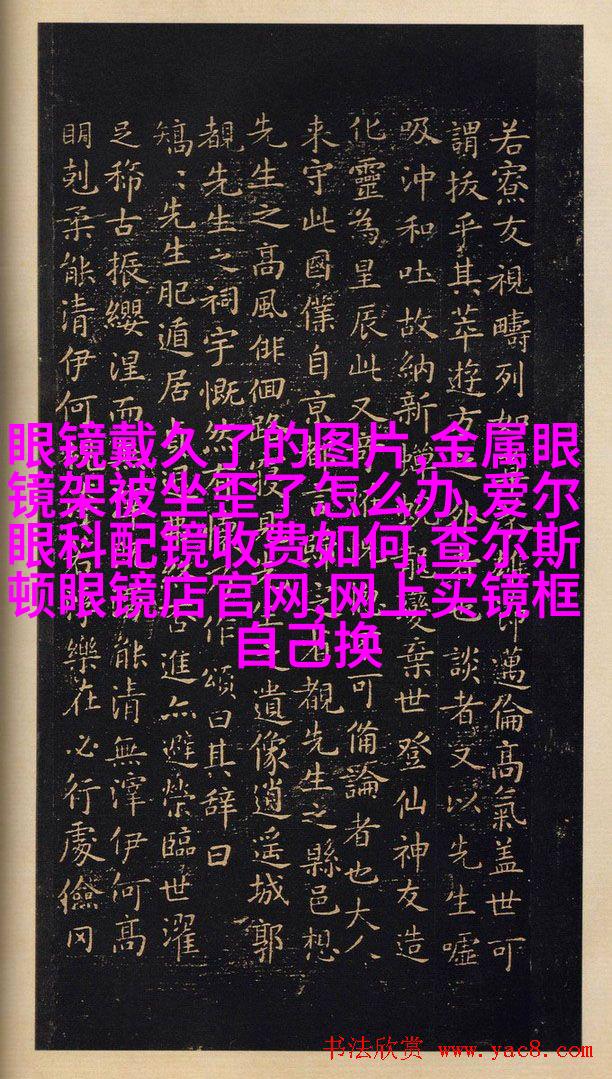 若寮友視疇列如節邁倫高氣盖世可
謂拔乎其萃遊方之也談者又以先生噓
吸沖和吐故納新蟬蛻龍變棄世登仙神友造
化靈為星辰此又可備論者也大人
来守此國僕自京都言者覩先生之縣邑想
先生之高風徘徊路寝見先生之遺像逍遥城郭
覩先生之祠宇慨然有作頌曰其辞曰
矯〻先生肥遁居貞否進亦避榮臨世濯
足稀古振纓涅而能清無滓伊何高
明剋柔能清伊何樂在必行處儉冈
眼镜戴久了的图片,金属眼
镜架被坐歪了怎么办,爱尔
眼科配镜收费如何,查尔斯
顿眼镜店官网,网上买镜框
自己换
书法欣赏 www.yac8.com